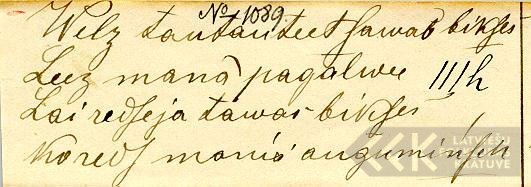 No 1089
Welz tautau teet sawas bikses
Leez mana pagalwee 111h
Lai redseja tawas bikses
Ko reds manis augumiņsch
LATVIEŠU
KRATUVE